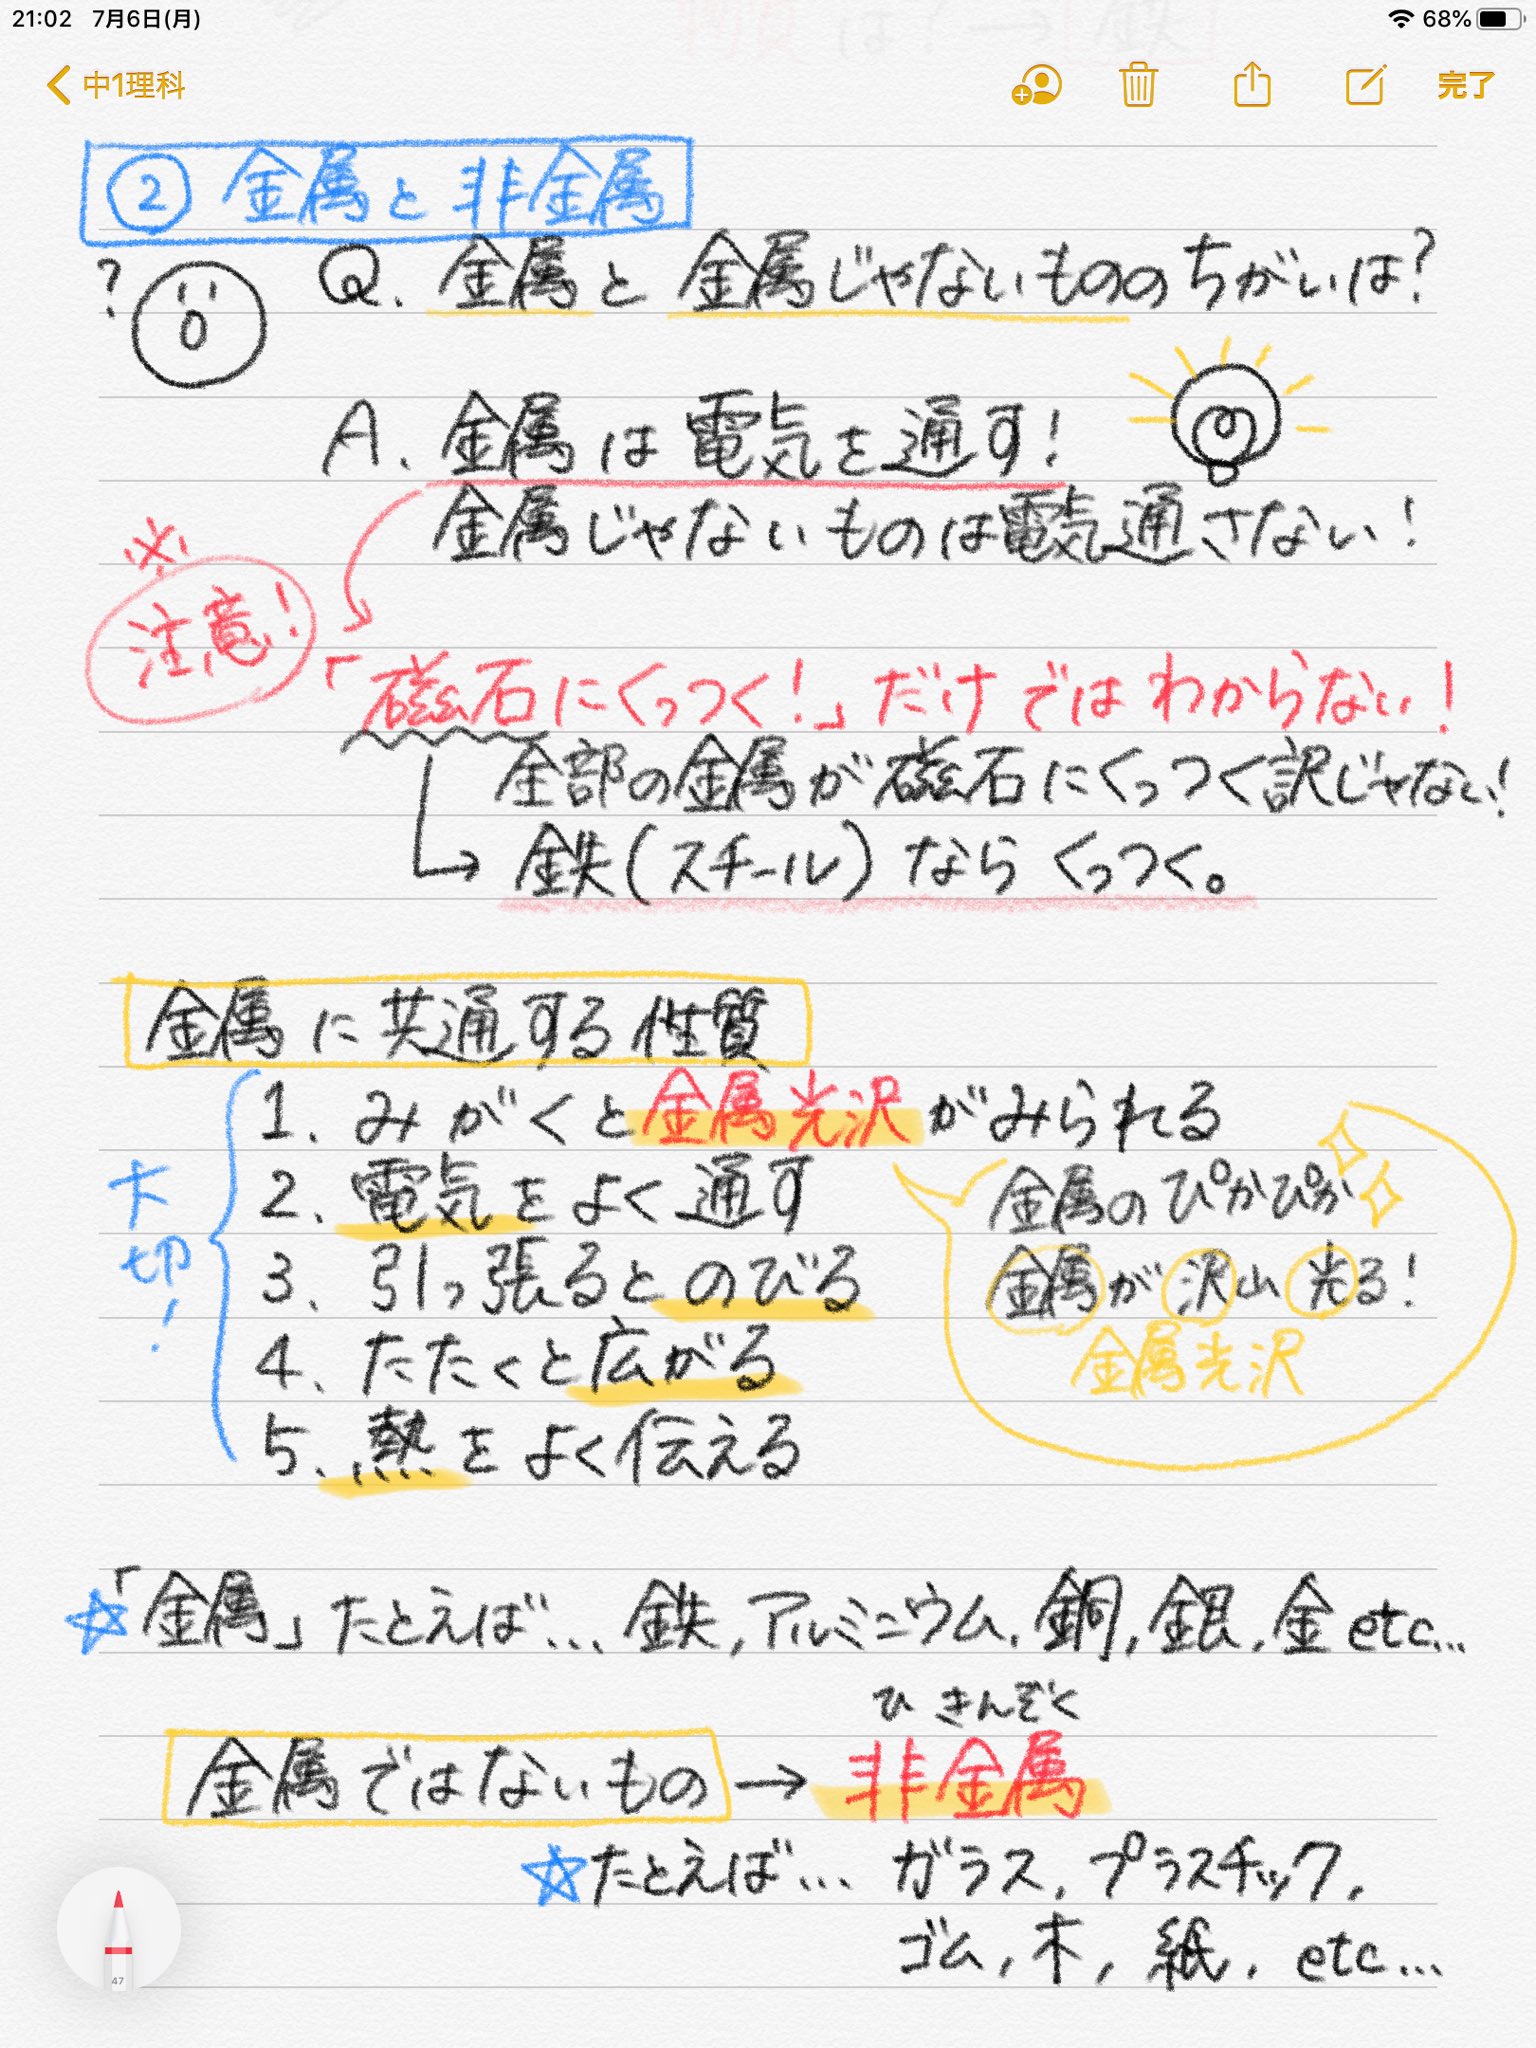 21:02 7月6日(月) 68%
中1理科 完了
② 金属と非金属
? Q. 金属と金属じゃないもののちがいは?
A. 金属は電気を通す!
金属じゃないものは電気通さない!
※
注意!
「磁石にくっつく!」だけではわからない!
全部の金属が磁石にくっつく訳じゃない!
→ 鉄(スチール)ならくっつく。
金属に共通する性質
大切!
1. みがくと金属光沢がみられる
2. 電気をよく通す
3. 引っ張るとのびる
4. たたくと広がる
5. 熱をよく伝える
金属のぴかぴか
金属が沢山光る!
金属光沢
☆「金属」たとえば... 鉄, アルミニウム, 銅, 銀, 金 etc...
ひきんぞく
金属ではないもの → 非金属
☆たとえば... ガラス, プラスチック,
ゴム, 木, 紙, etc...
47